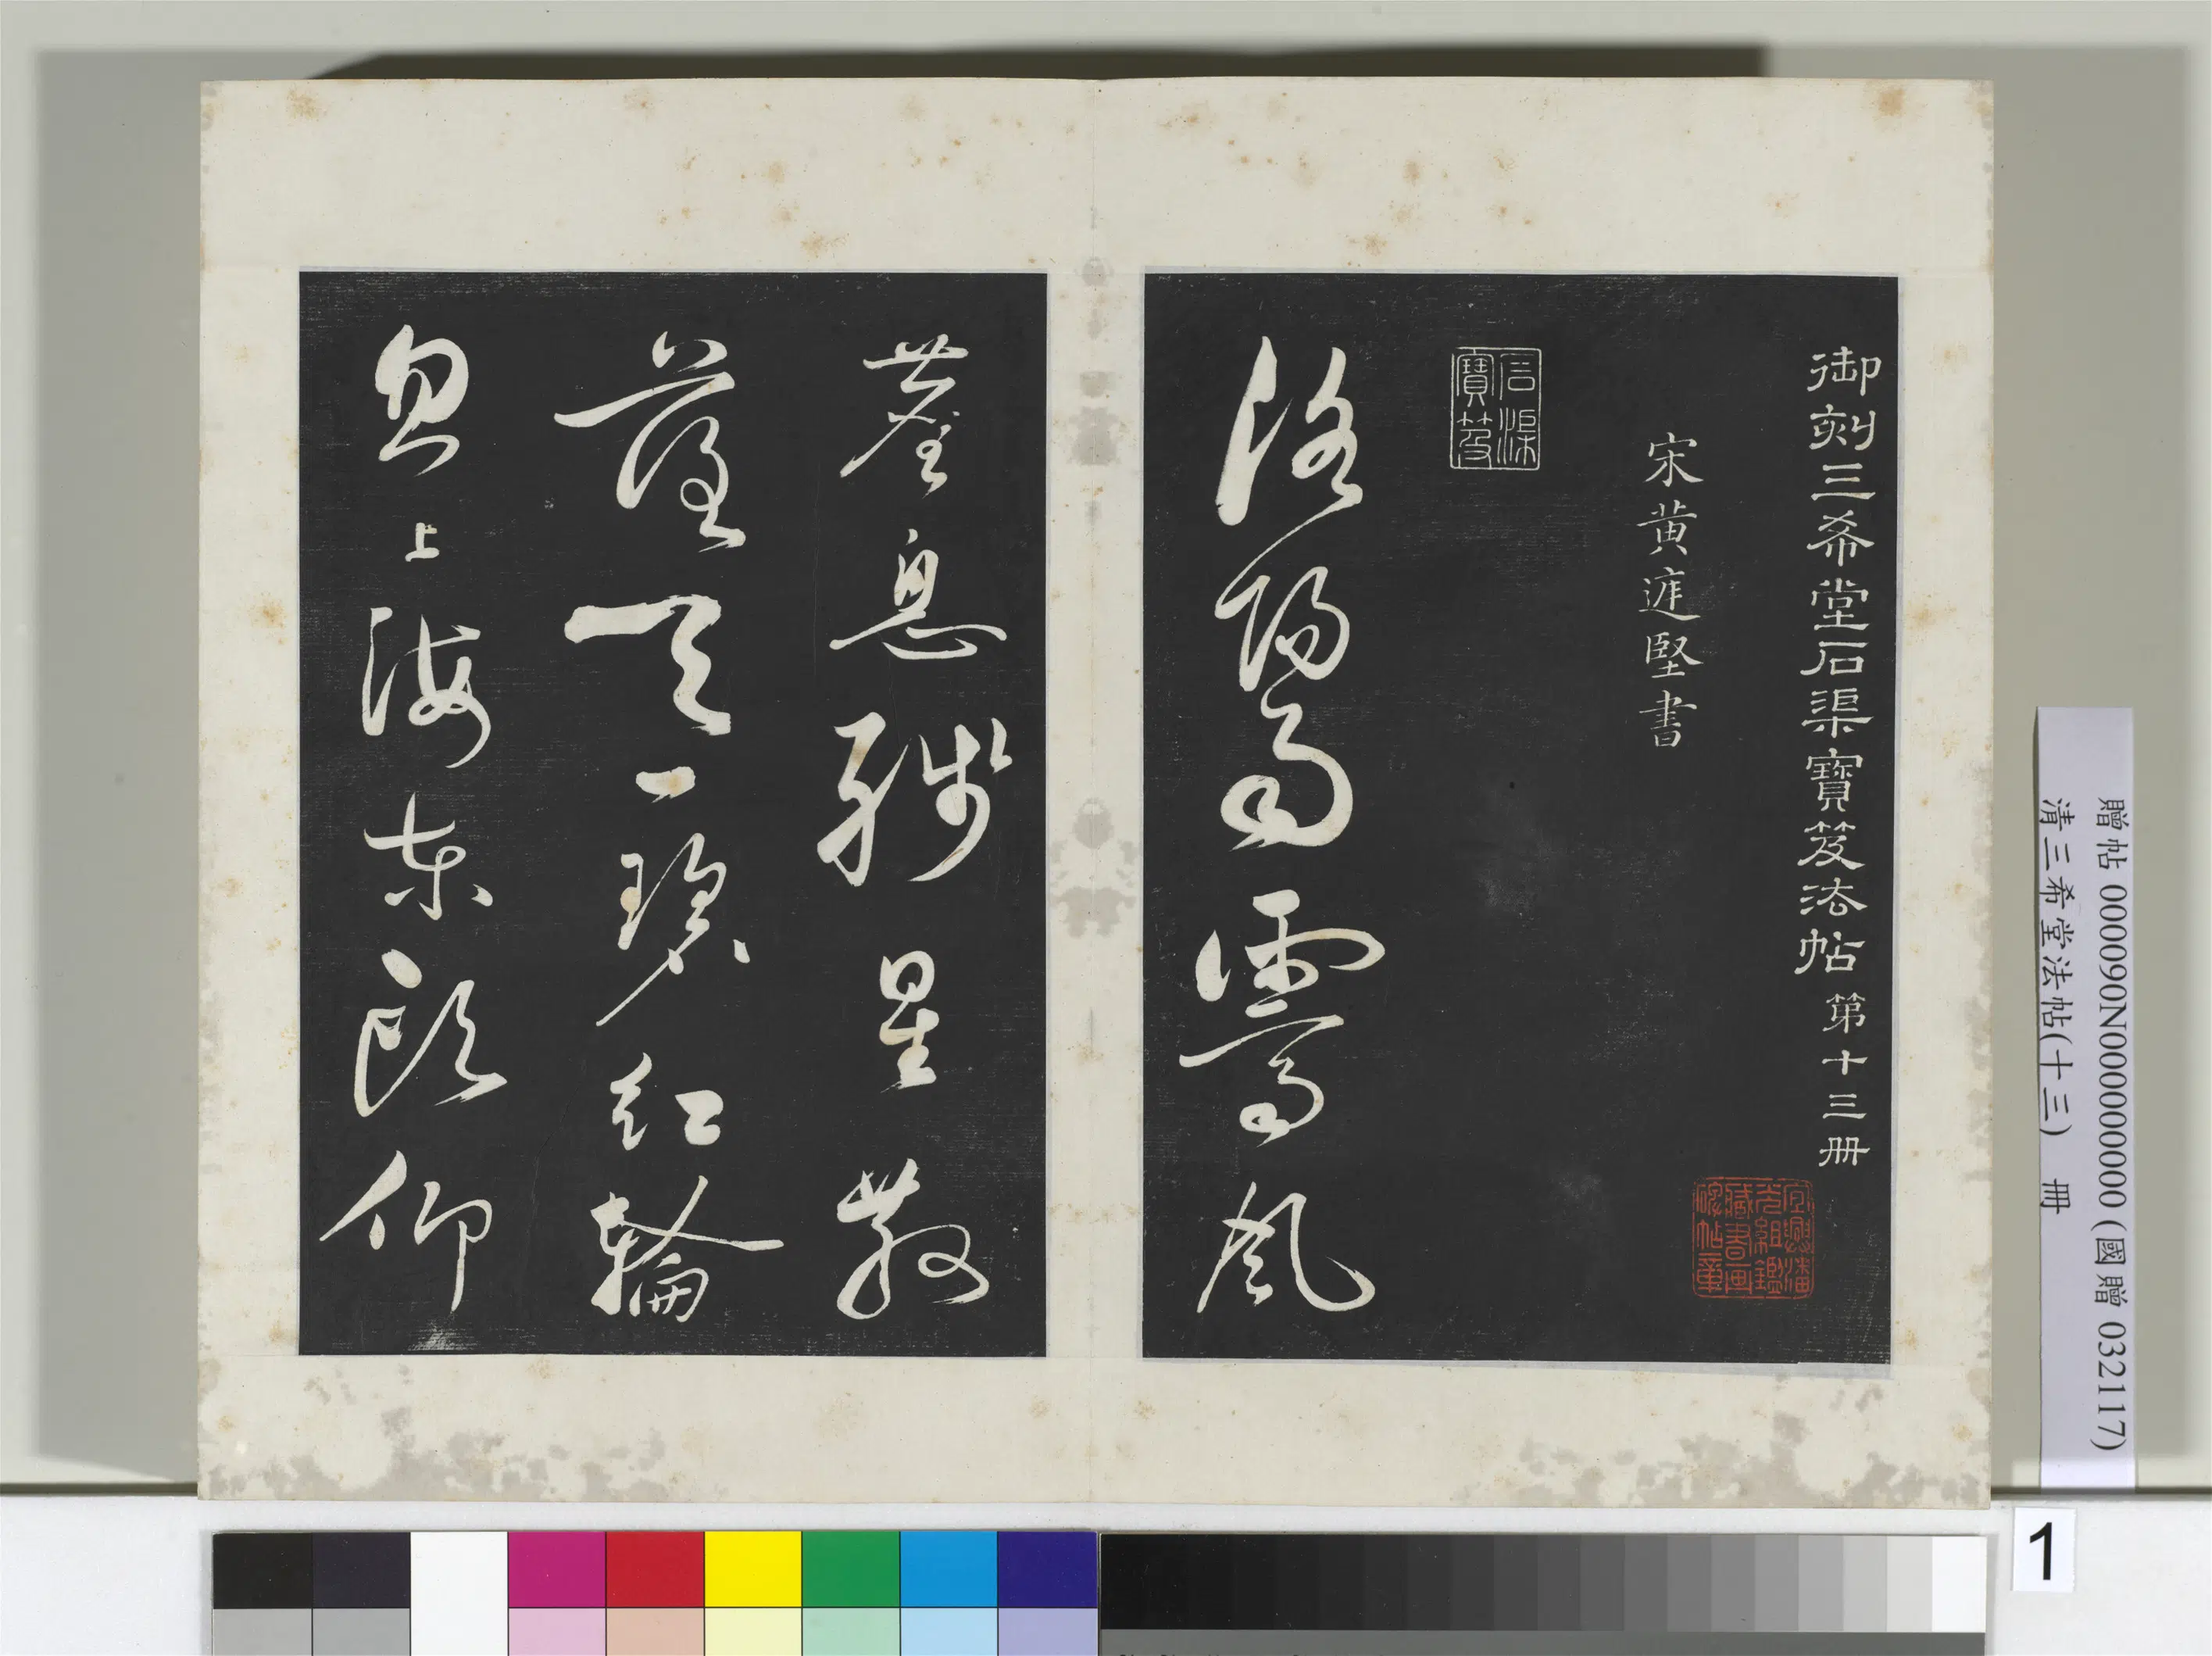 御刻三希堂石渠寶笈法帖 第十三册
宋黃庭堅書
石渠寶笈
洛陽雨霽風
塵息殘星散
落天一碧紅輪
忽上海東頭仰
宜興潘
組鑑
藏書画
碑帖章
贈帖 000090N000000000 (國贈 032117)
清三希堂法帖(十三) 冊
1